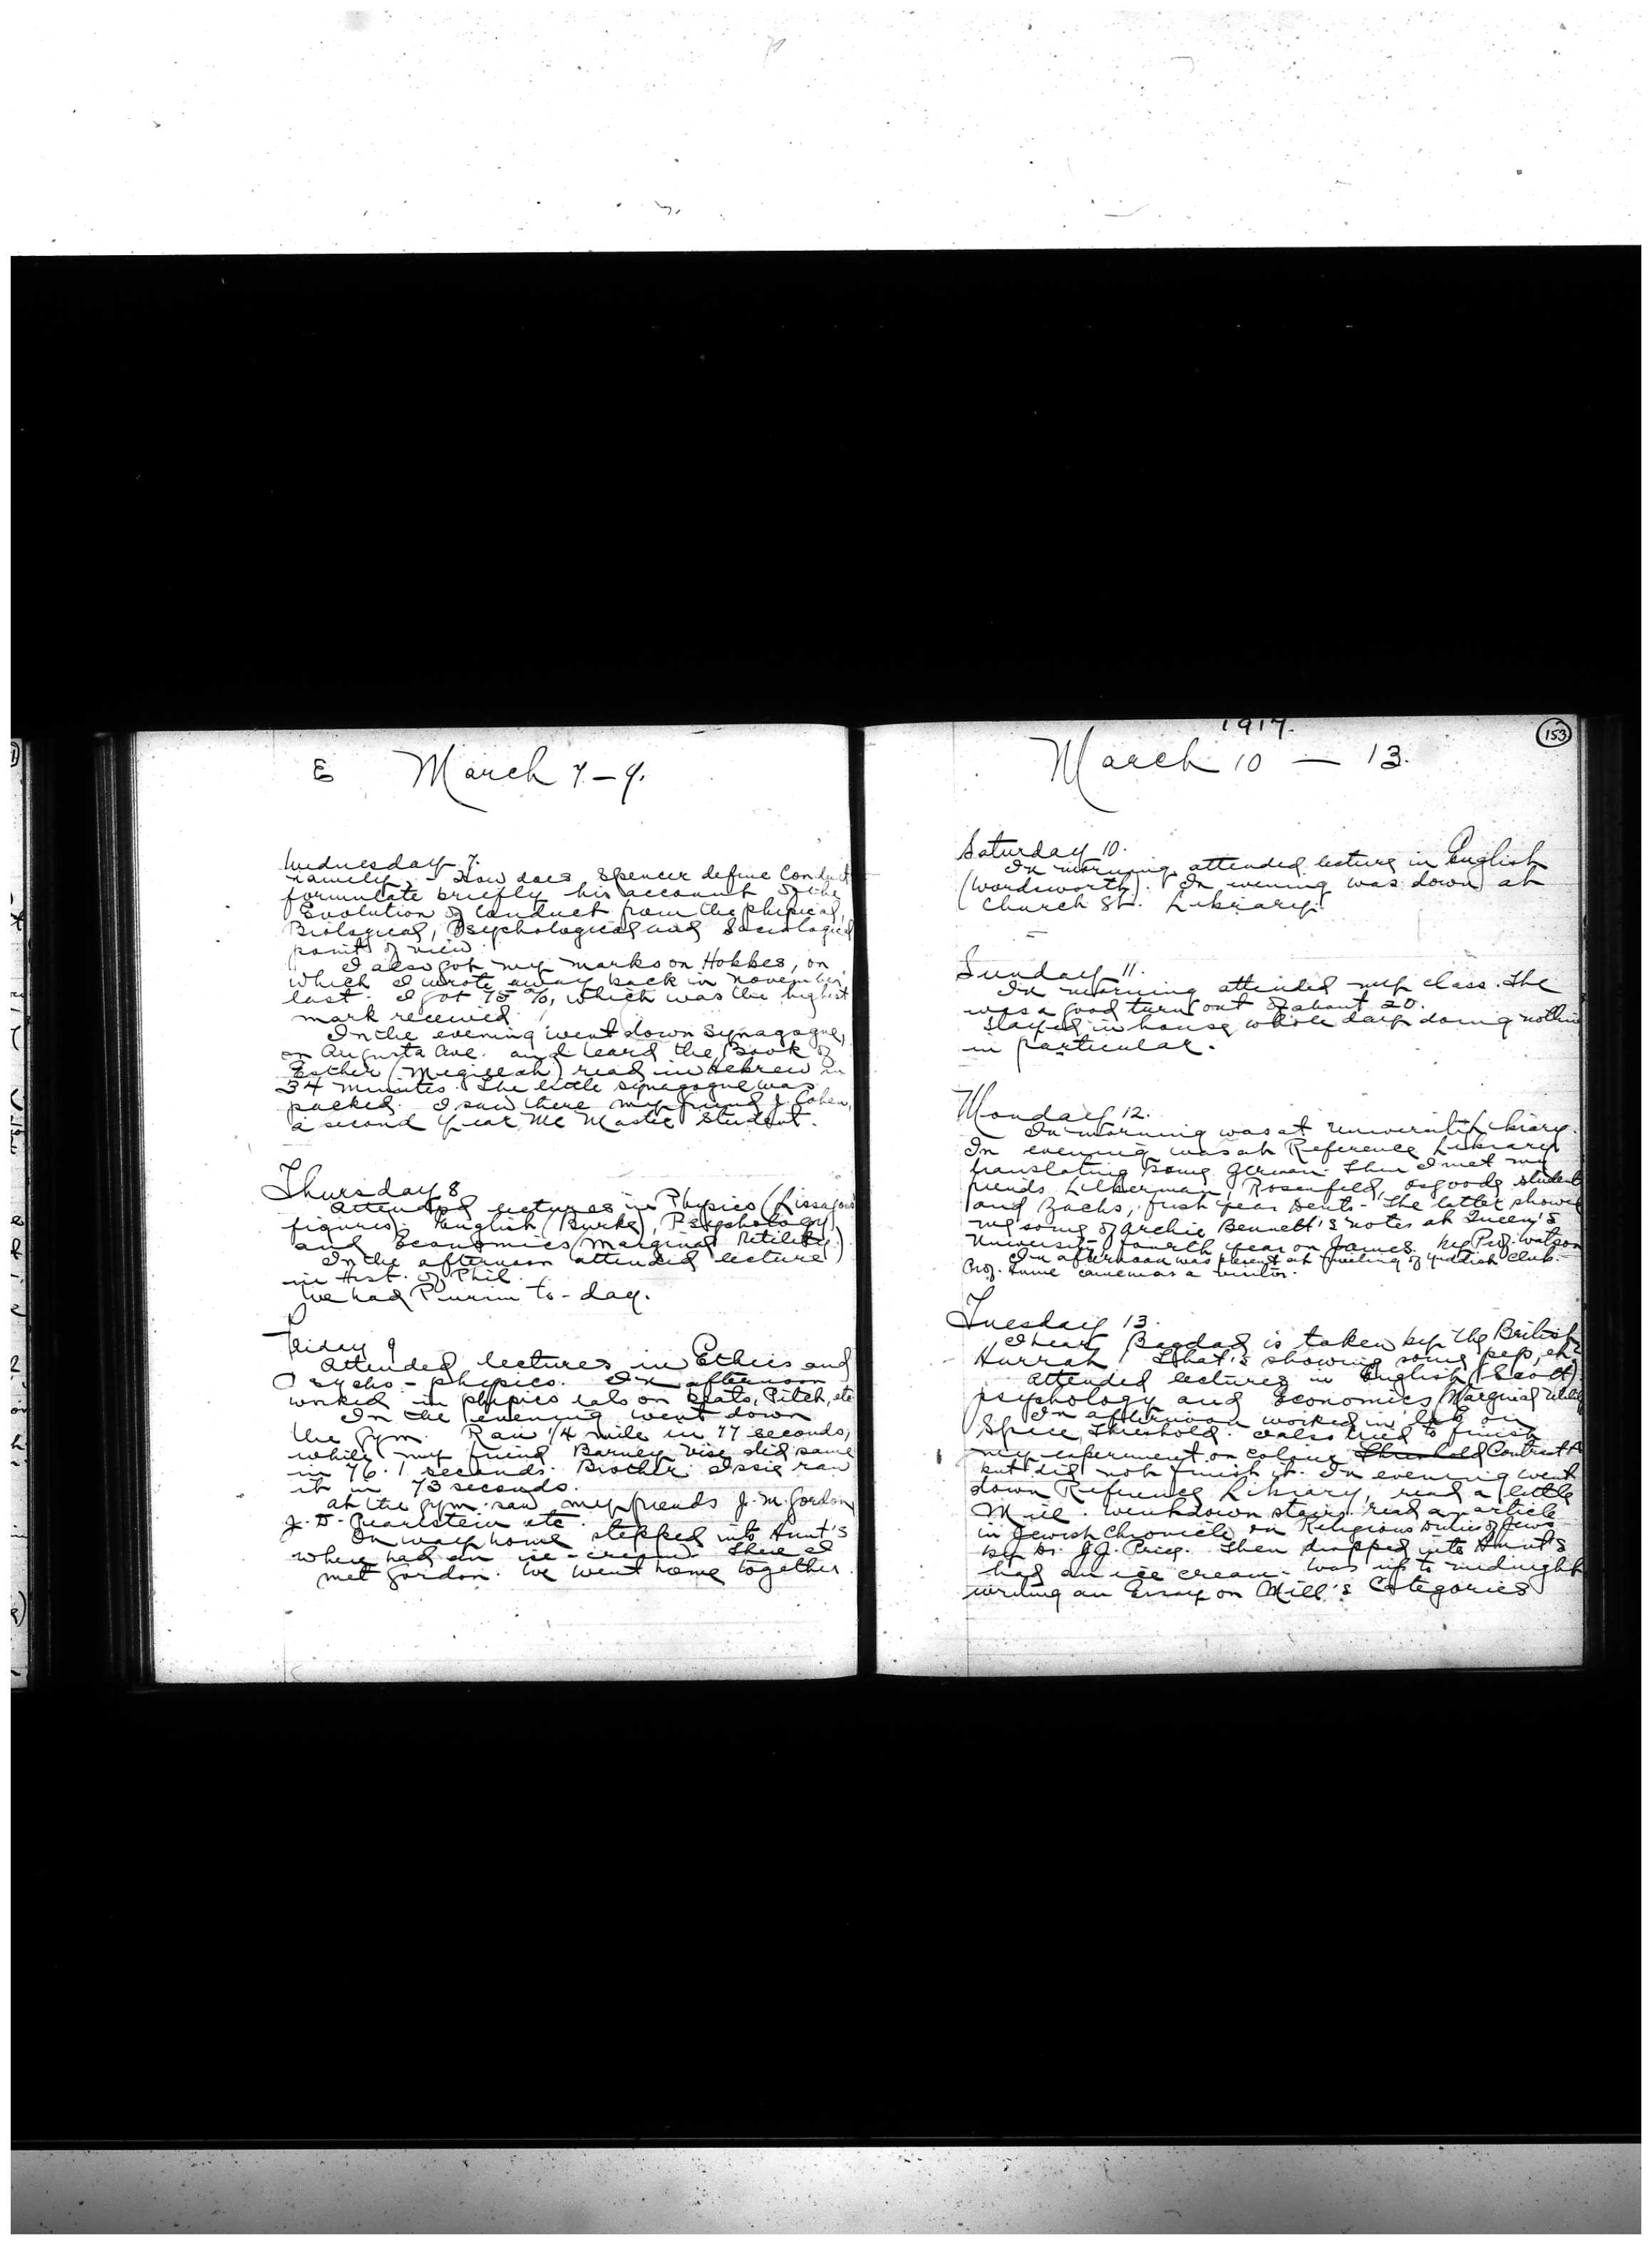 E March 7-9.
Wednesday 7.
namely - How does Spencer define Conduct
formulate briefly his account of the
Evolution of Conduct from the physical,
Biological, Psychological and Sociological
points of view.
I also got my marks on Hobbes, on
which I wrote away back in November
last. I got 75%, which was the highest
mark received.
In the evening went down Synagogue,
on Augusta Ave. and heard the Book of
Esther (Megiseah) read in Hebrew in
34 minutes. The little synagogue was
packed. I saw there my friend J. Cohen,
a second year Mc Master Student.
Thursday 8
Attended lectures in Physics (Lissajous
figures), English (Burke), Psychology
and Economics (Marginal Utility.)
In the afternoon attended lecture
in Hist. of Phil.
We had Purim to-day.
Friday 9
Attended lectures in Ethics and
Psycho-physics. In afternoon
worked in physics lab on Beats, Pitch, etc
In the evening went down
the Gym. Ran 1/4 mile in 77 seconds,
while my friend Barney Vise did same
in 76.1 seconds. Brother Issie ran
it in 73 seconds.
At the gym saw my friends J. M. Gordon,
J. D. Pearlstein etc.
On way home stepped into Hunt's
where had an ice-cream. There I
met Gordon. We went home together.
1917.
153
March 10 — 13.
Saturday 10.
In morning attended lecture in English
(Wordsworth). In evening was down at
Church St. Library.
Sunday 11.
In morning attended my class. The
was a good turn out of about 20.
Stayed in house whole day doing nothing
in particular.
Monday 12.
In morning was at University Library.
In evening was at Reference Library
translating some German. Then I met my
friends Lieberman, Rosenfeld, Osgoode student
and Zachs, first year Dents - The latter showed
me some of Archie Bennett's notes at Queen's
University fourth year on James by Prof. Watson
In afternoon was present at meeting of Yiddish Club.
Prof. Hume came as a visitor.
Tuesday 13.
I hear Bagdad is taken by the British
Hurrah! That's showing some pep, eh?
Attended lectures in English (Scott)
psychology and Economics (Marginal Utility
In afternoon worked in lab on
Space Threshold. I also tried to finish
my experiment on colour Threshold Contrast
but did not finish it. In evening went
down Reference Library, read a little
Mill. Went down stairs read an article
in Jewish Chronicle on Religious Duties of Jews
by Dr. J. J. Price. Then dropped into Hunt's
had an ice cream. Was up to midnight
writing an Essay on Mill's Categories